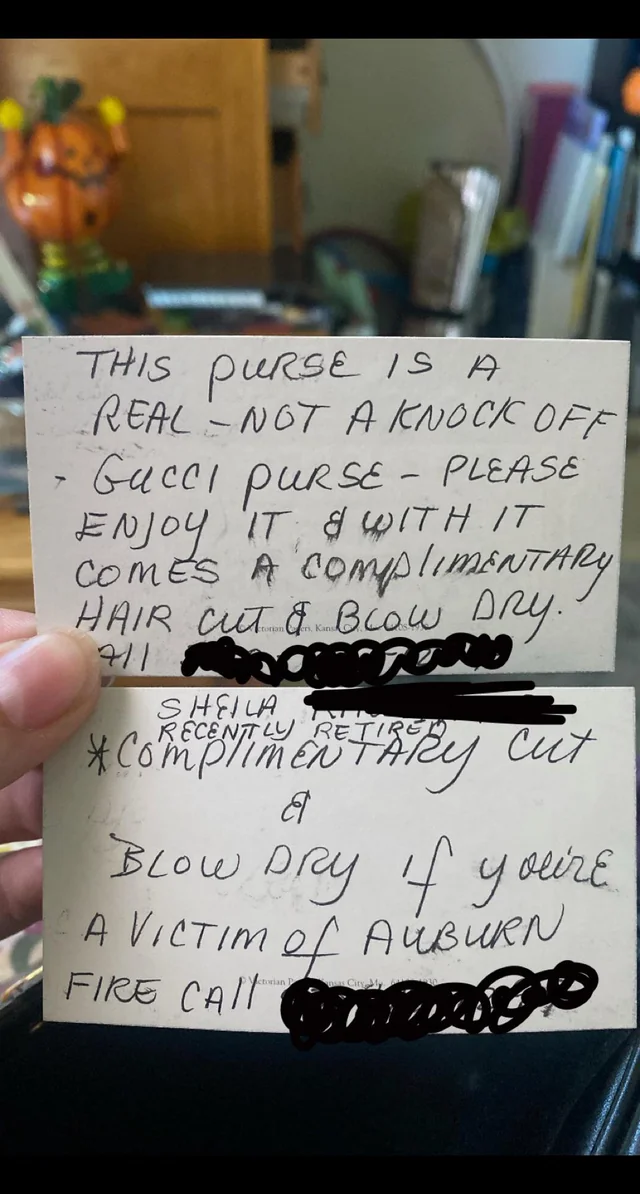 THIS PURSE IS A
REAL - NOT A KNOCK OFF
- GUCCI PURSE - PLEASE
ENJOY IT & WITH IT
COMES A COMPLIMENTARY
HAIR CUT & BLOW DRY.
All
SHEILA
RECENTLY RETIRED
*COMPLIMENTARY CUT
&
BLOW DRY if you'RE
A VICTIM of AUBURN
FIRE CAll